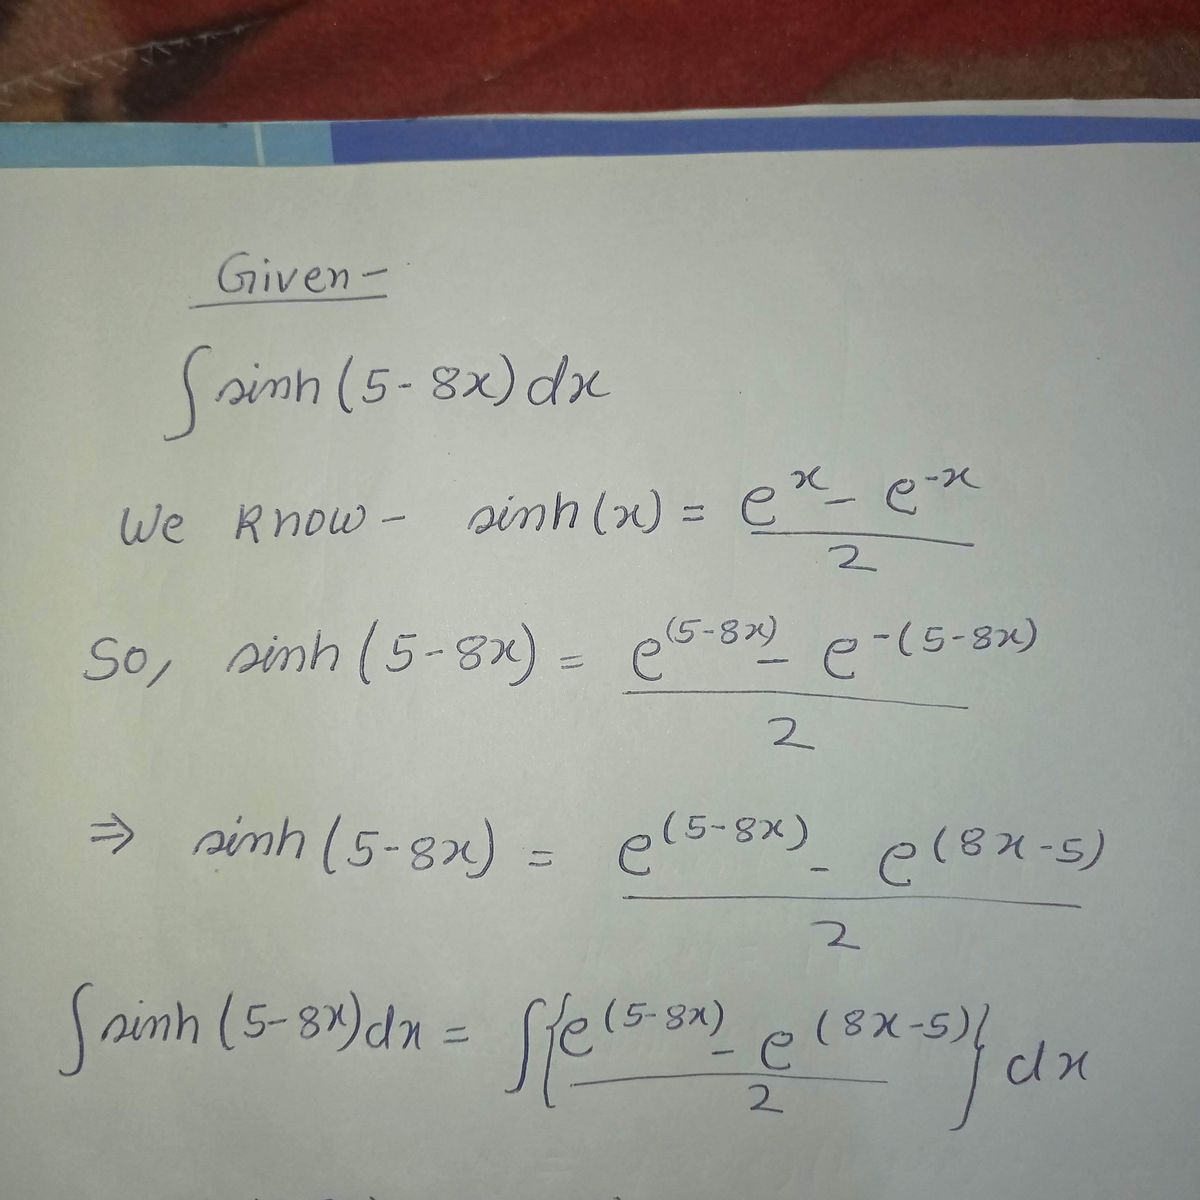 Given -
∫ sinh (5-8x) dx
We know - sinh(x) = (e^x - e^-x)/2
So, sinh (5-8x) = (e^(5-8x) - e^-(5-8x))/2
⇒ sinh (5-8x) = (e^(5-8x) - e^(8x-5))/2
∫ sinh (5-8x) dx = ∫ {(e^(5-8x) - e^(8x-5))/2} dx